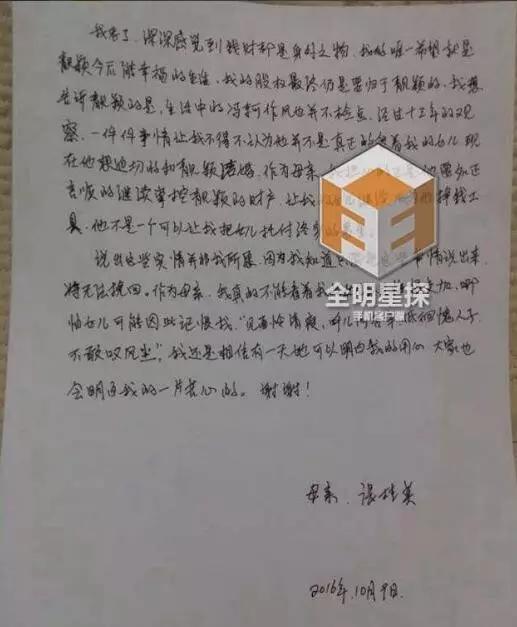 我老了，深深感觉到钱财都是身外之物，我的唯一希望就是
靓颖今后能幸福的生活，我的股权最终仍是要归于靓颖的，我想
告诉靓颖的是，生活中的冯轲作风也并不检点，经过十三年的观
察，一件件事情让我不得不认为他并不是真正的爱着我的女儿，现
在他想迫切的和靓颖结婚，作为母亲，我担心的正是他需要名正
言顺的继续掌控靓颖的财产，让我的女儿继续
具，他不是一个可以让我把女儿托付终身的男人。
说出这些实情并非我所愿，因为我知道 事情说出来，
将无法挽回。作为母亲，我真的不能看着我 哪
怕女儿可能因此记恨我，“见面怜清瘦，呼儿问苦辛，低徊愧人子，
不敢叹风尘”，我还是相信有一天她可以明白我的用心，大家也
会明白我的一片苦心的。谢谢！
母亲：张桂英
2016年10月9日.
全明星探
手机客户端